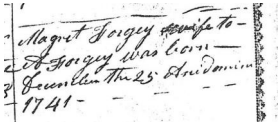 Magret Forgey wife to
A Forgey was born
December the 25 Ano domini
1741